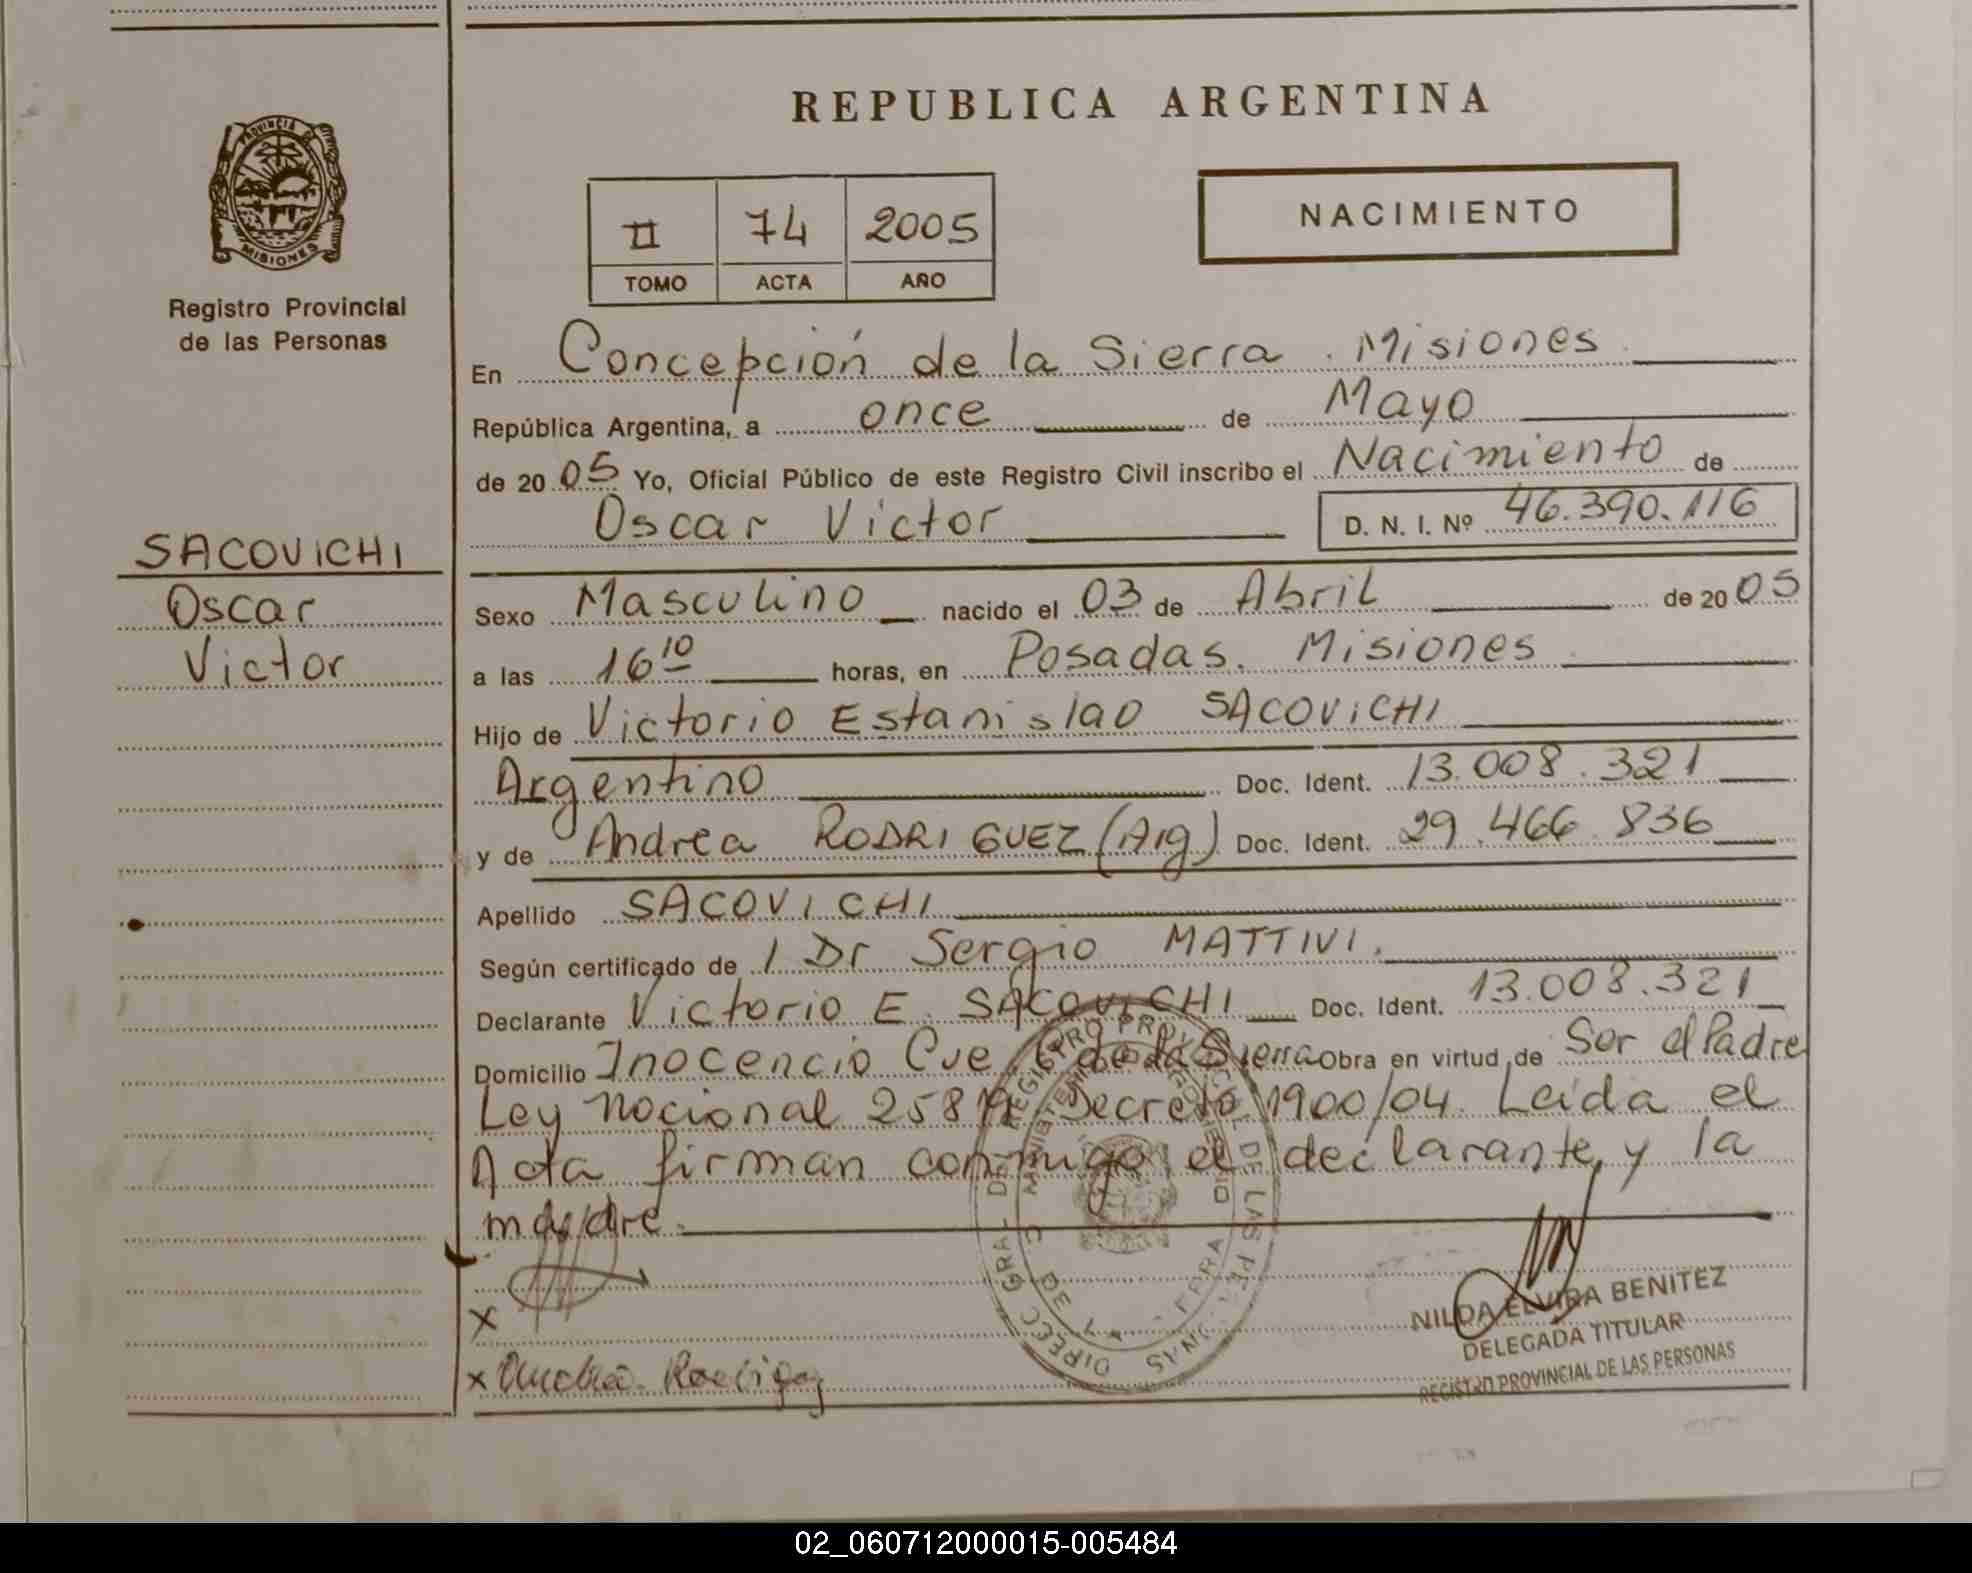 REPUBLICA ARGENTINA
PROVINCIA DE
MISIONES
Registro Provincial
de las Personas
II 74 2005
TOMO ACTA AÑO
NACIMIENTO
En Concepción de la Sierra . Misiones
República Argentina, a once de Mayo
de 20 05 Yo, Oficial Público de este Registro Civil inscribo el Nacimiento de
Oscar Victor D. N. I. Nº 46.390.116
SACOVICHI
Oscar
Victor
Sexo Masculino nacido el 03 de Abril de 20 05
a las 16 10 horas, en Posadas. Misiones
Hijo de Victorio Estanislao SACOVICHI
Argentino Doc. Ident. 13.008.321
y de Andrea RODRIGUEZ (Arg) Doc. Ident. 29.466.836
Apellido SACOVICHI
Según certificado de / Dr Sergio MATTIVI.
Declarante Victorio E. SACOVICHI Doc. Ident. 13.008.321
Domicilio Inocencio Cue C de la Sierra Obra en virtud de Ser el Padre
Ley Nacional 25819 Decreto 1900/04. Leida el
Acta firman conmigo el declarante y la
madre.
X
x Rodriguez
NILDA ELVIRA BENITEZ
DELEGADA TITULAR
REGISTRO PROVINCIAL DE LAS PERSONAS
02_060712000015-005484